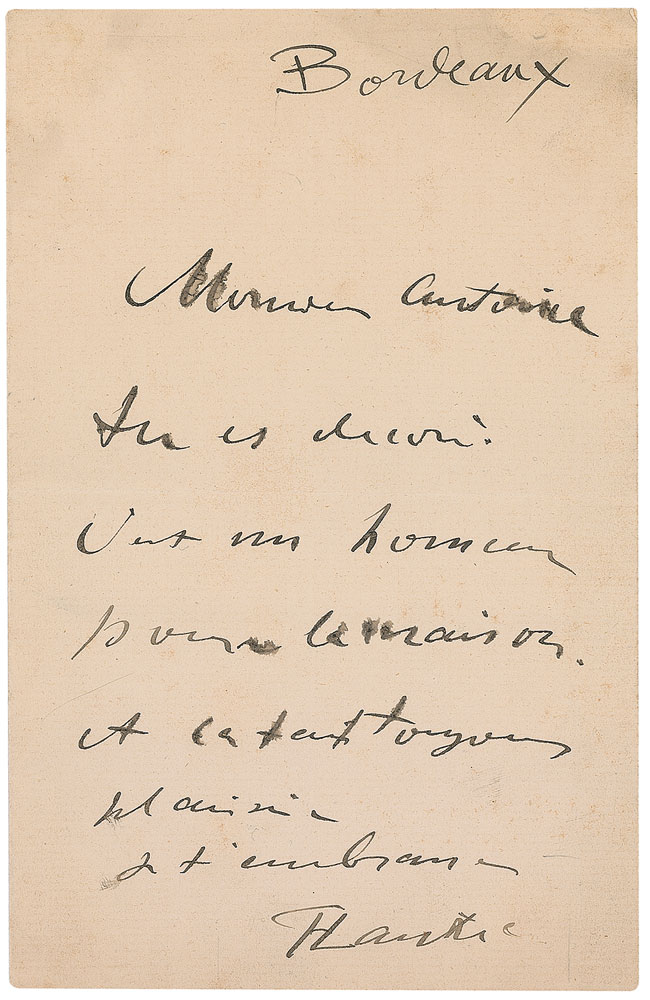 Bordeaux
Monsieur Antoine
tu es decoré.
C'est un honneur
pour la maison.
et ca fait toujours
plaisir
je t'embrasse
HLautrec